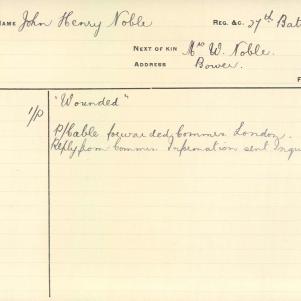 NAME John Henry Noble REG. &C. 27th Bat
NEXT OF KIN Mrs W. Noble.
ADDRESS Bower.
F
"Wounded"
1/P
P/Cable forwarded Commrs London.
Reply from Commrs Information sent Inqu